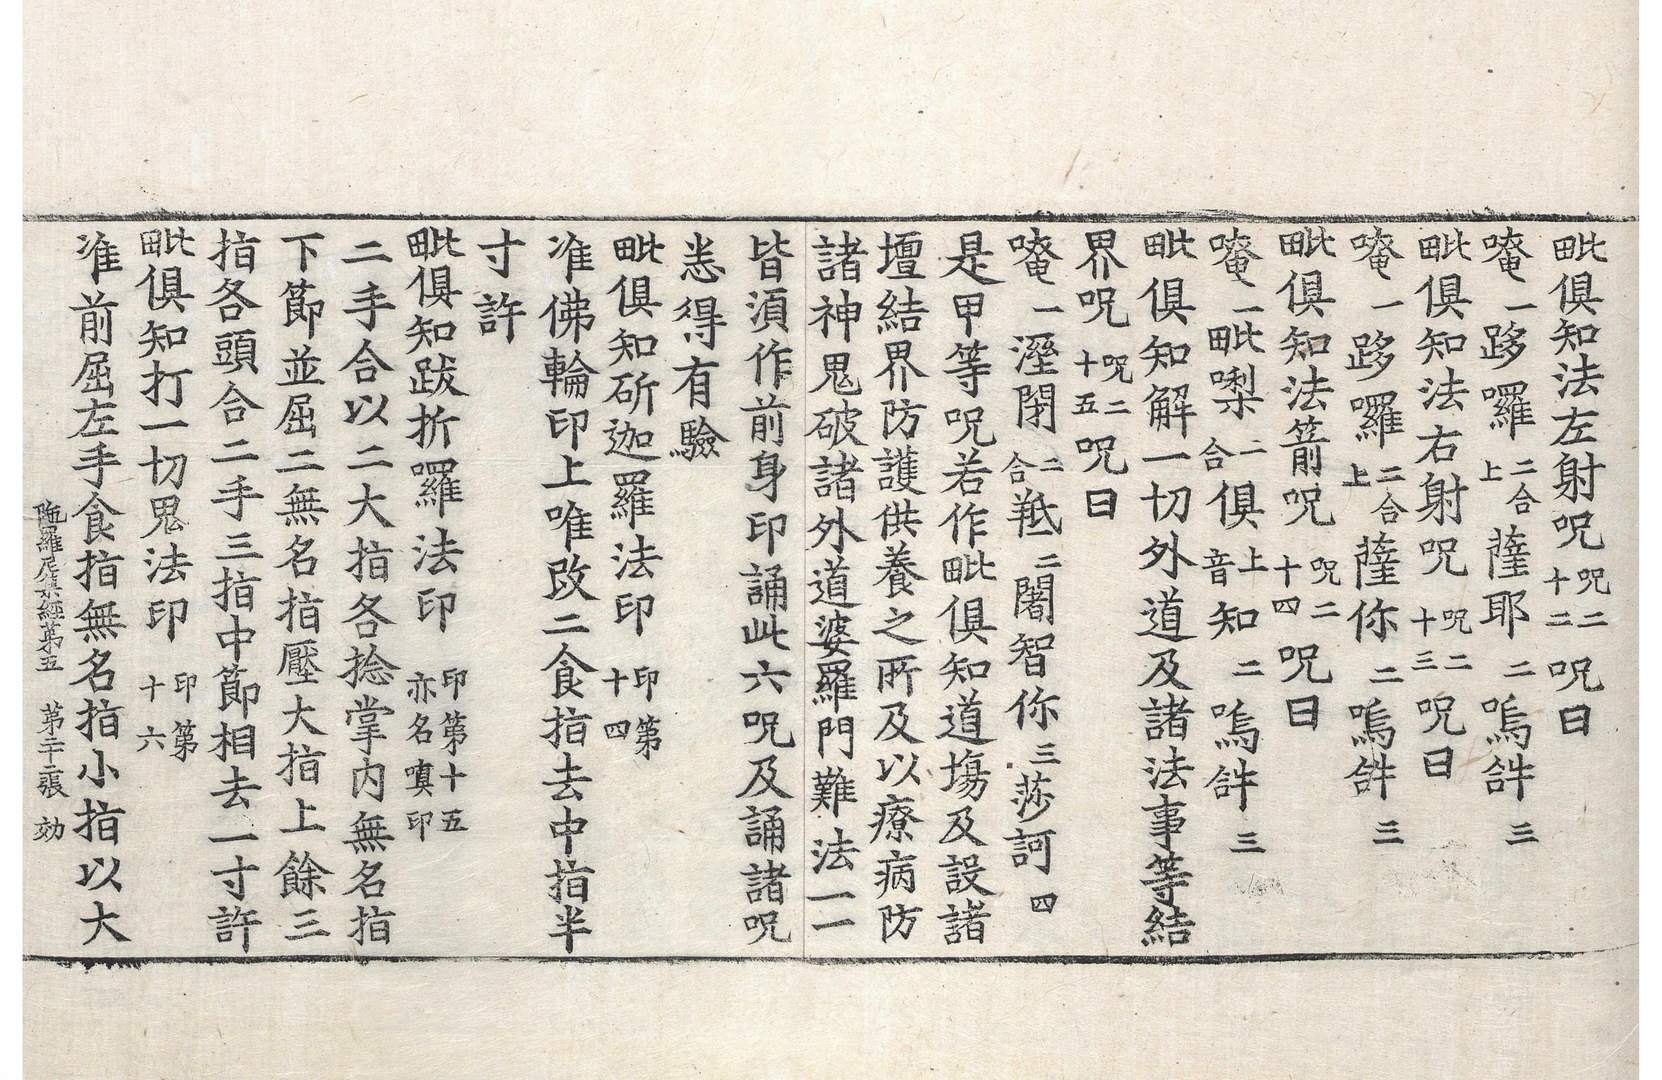 毗俱知法左射呪呪二十二呪曰
唵一跢囉二合上薩耶二嗚𤙖三
毗俱知法右射呪呪二十三呪曰
唵一跢囉二合上薩你二嗚𤙖三
毗俱知法箭呪呪二十四呪曰
唵一毗㗚二合俱上音知二嗚𤙖三
毗俱知解一切外道及諸法事等結
界呪呪二十五呪曰
唵一溼閇二合羝二闍智你三莎訶四
是甲等呪若作毗俱知道場及設諸
壇結界防護供養之所及以療病防
諸神鬼破諸外道婆羅門難法一一
皆須作前身印誦此六呪及誦諸呪
恙得有驗
毗俱知斫迦羅法印印第十四
准佛輪印上唯改二食指去中指半
寸許
毗俱知跋折囉法印印第十五亦名嗔印
二手合以二大指各捻掌內無名指
下節並屈二無名指壓大指上餘三
指各頭合二手三指中節相去一寸許
毗俱知打一切鬼法印印第十六
准前屈左手食指無名指小指以大
陁羅尼集經第五 第二十二張 効